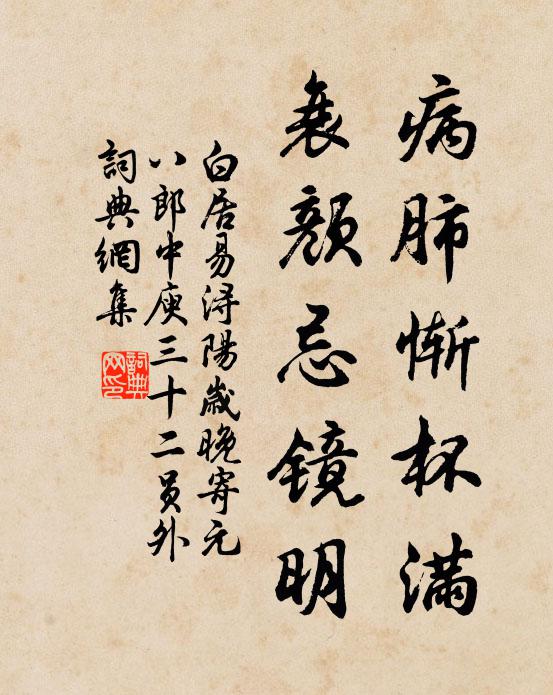 病肺惭杯满
衰颜忌镜明
白居易潯陽歲晚寄元
八郎中庾三十二员外
詞典網集
詞典
网印